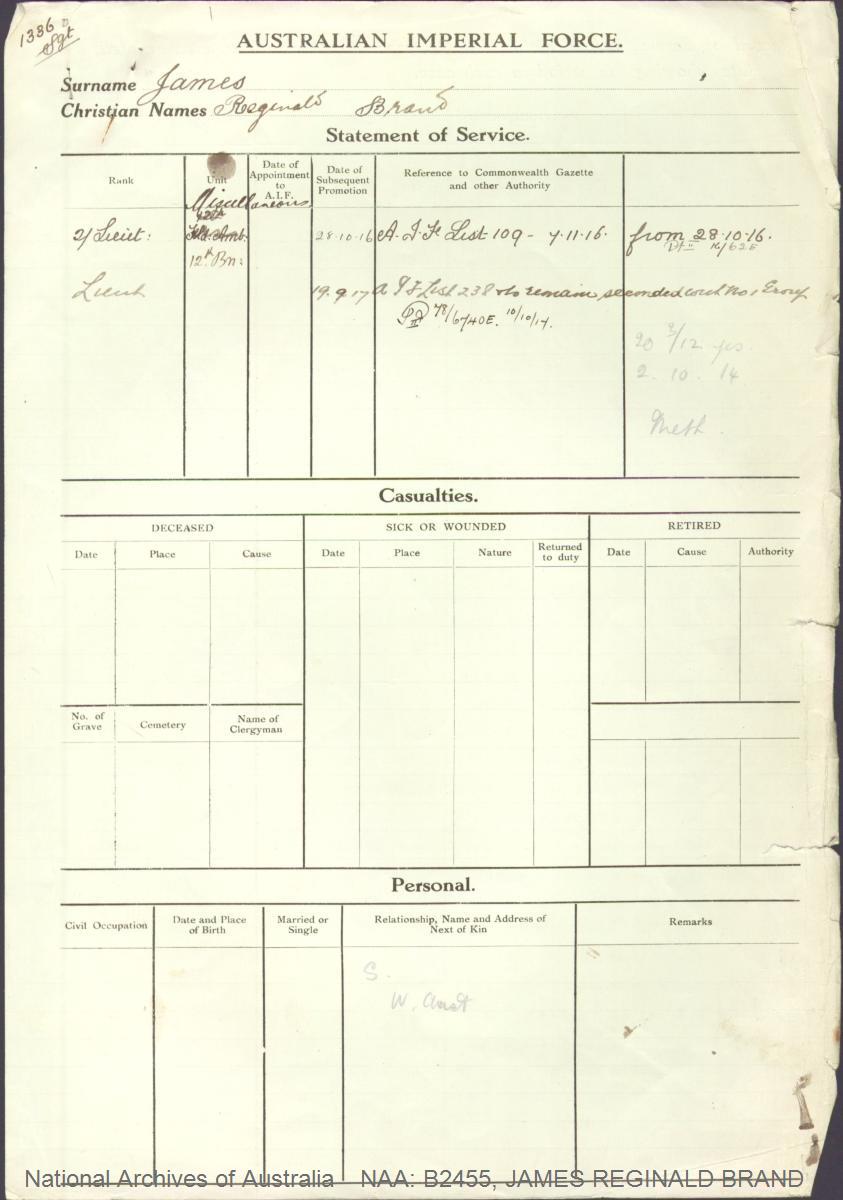 1336
Sgt
AUSTRALIAN IMPERIAL FORCE.
Surname James
Christian Names Reginald Brand
Statement of Service.
Rank
Unit
Date of Appointment to A.I.F.
Date of Subsequent Promotion
Reference to Commonwealth Gazette and other Authority
Miscellaneous
2/Lieut: Fld. Amb. 28.10.16 A.I.F. List 109 - 7.11.16. from 28.10.16.
12th Bn:
Lieut 19.9.17 A I F List 238 to remain seconded with No 1 Group
78/6740E. 10/10/17.
20 3/12 yrs.
2. 10. 14
Meth.
Casualties.
DECEASED
SICK OR WOUNDED
RETIRED
Date
Place
Cause
Date
Place
Nature
Returned to duty
Date
Cause
Authority
No. of Grave
Cemetery
Name of Clergyman
Personal.
Civil Occupation
Date and Place of Birth
Married or Single
Relationship, Name and Address of Next of Kin
Remarks
S.
W. Aust
National Archives of Australia NAA: B2455, JAMES REGINALD BRAND